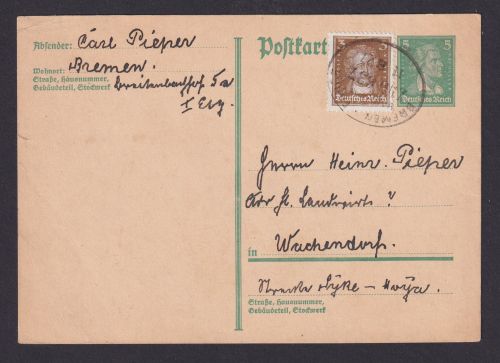 Absender: Carl Pieper
Bremen.
Wohnort:
Straße, Hausnummer,
Gebäudeteil, Stockwerk
5a
I Etg.
Postkarte
3
Deutsches Reich
5 5
Deutsches Reich
BREMEN
Herrn Heinr. Pieper
Landwirts
in Wachendorf.
Strecke Syke - Hoya.
Straße, Hausnummer,
Gebäudeteil, Stockwerk